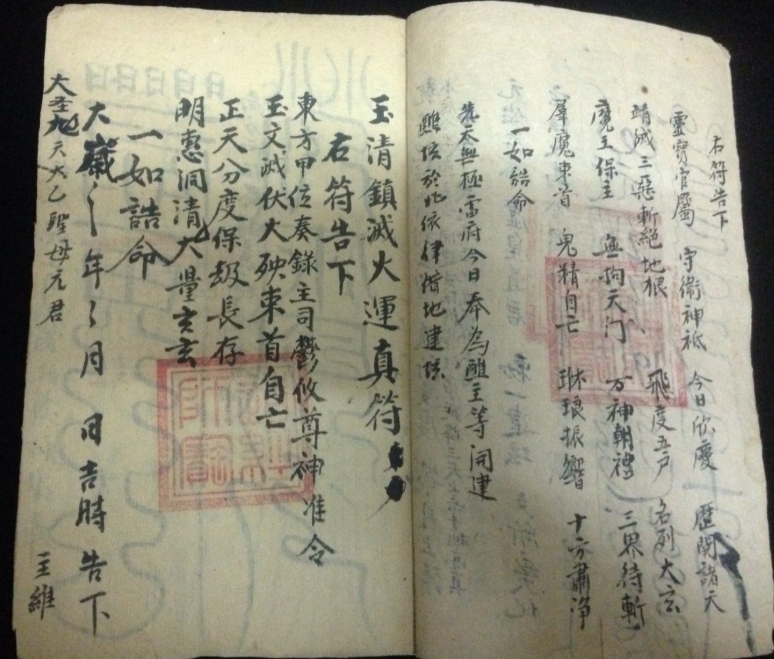 右符告下
靈寶官屬 守衛神祗 今日欣慶 歷関諸天
靖滅三惡 斬絕地根 飛度五戶 名列太玄
魔王保主 無拘天門 万神朝禮 三界待
羣魔束首 鬼精自亡 琳琅振響 十方肅净
一如誥命
無極雷府今日奉為醮主等開建
醮壇於此依律借地建壇
玉清鎮滅火運真符
右符告下
東方甲位奏錄主司鬱攸尊神准令
玉文滅伏大殃束首自亡
正天分度保劫長存
明惠洞清大量玄玄
一如誥命
大歲 年 月 日吉時告下
大聖九天太乙聖母元君
王維